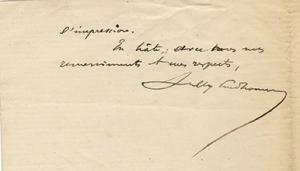 d'impression.
En hâte, avec tous mes
remerciements & mes respects,
Sully Prudhomme